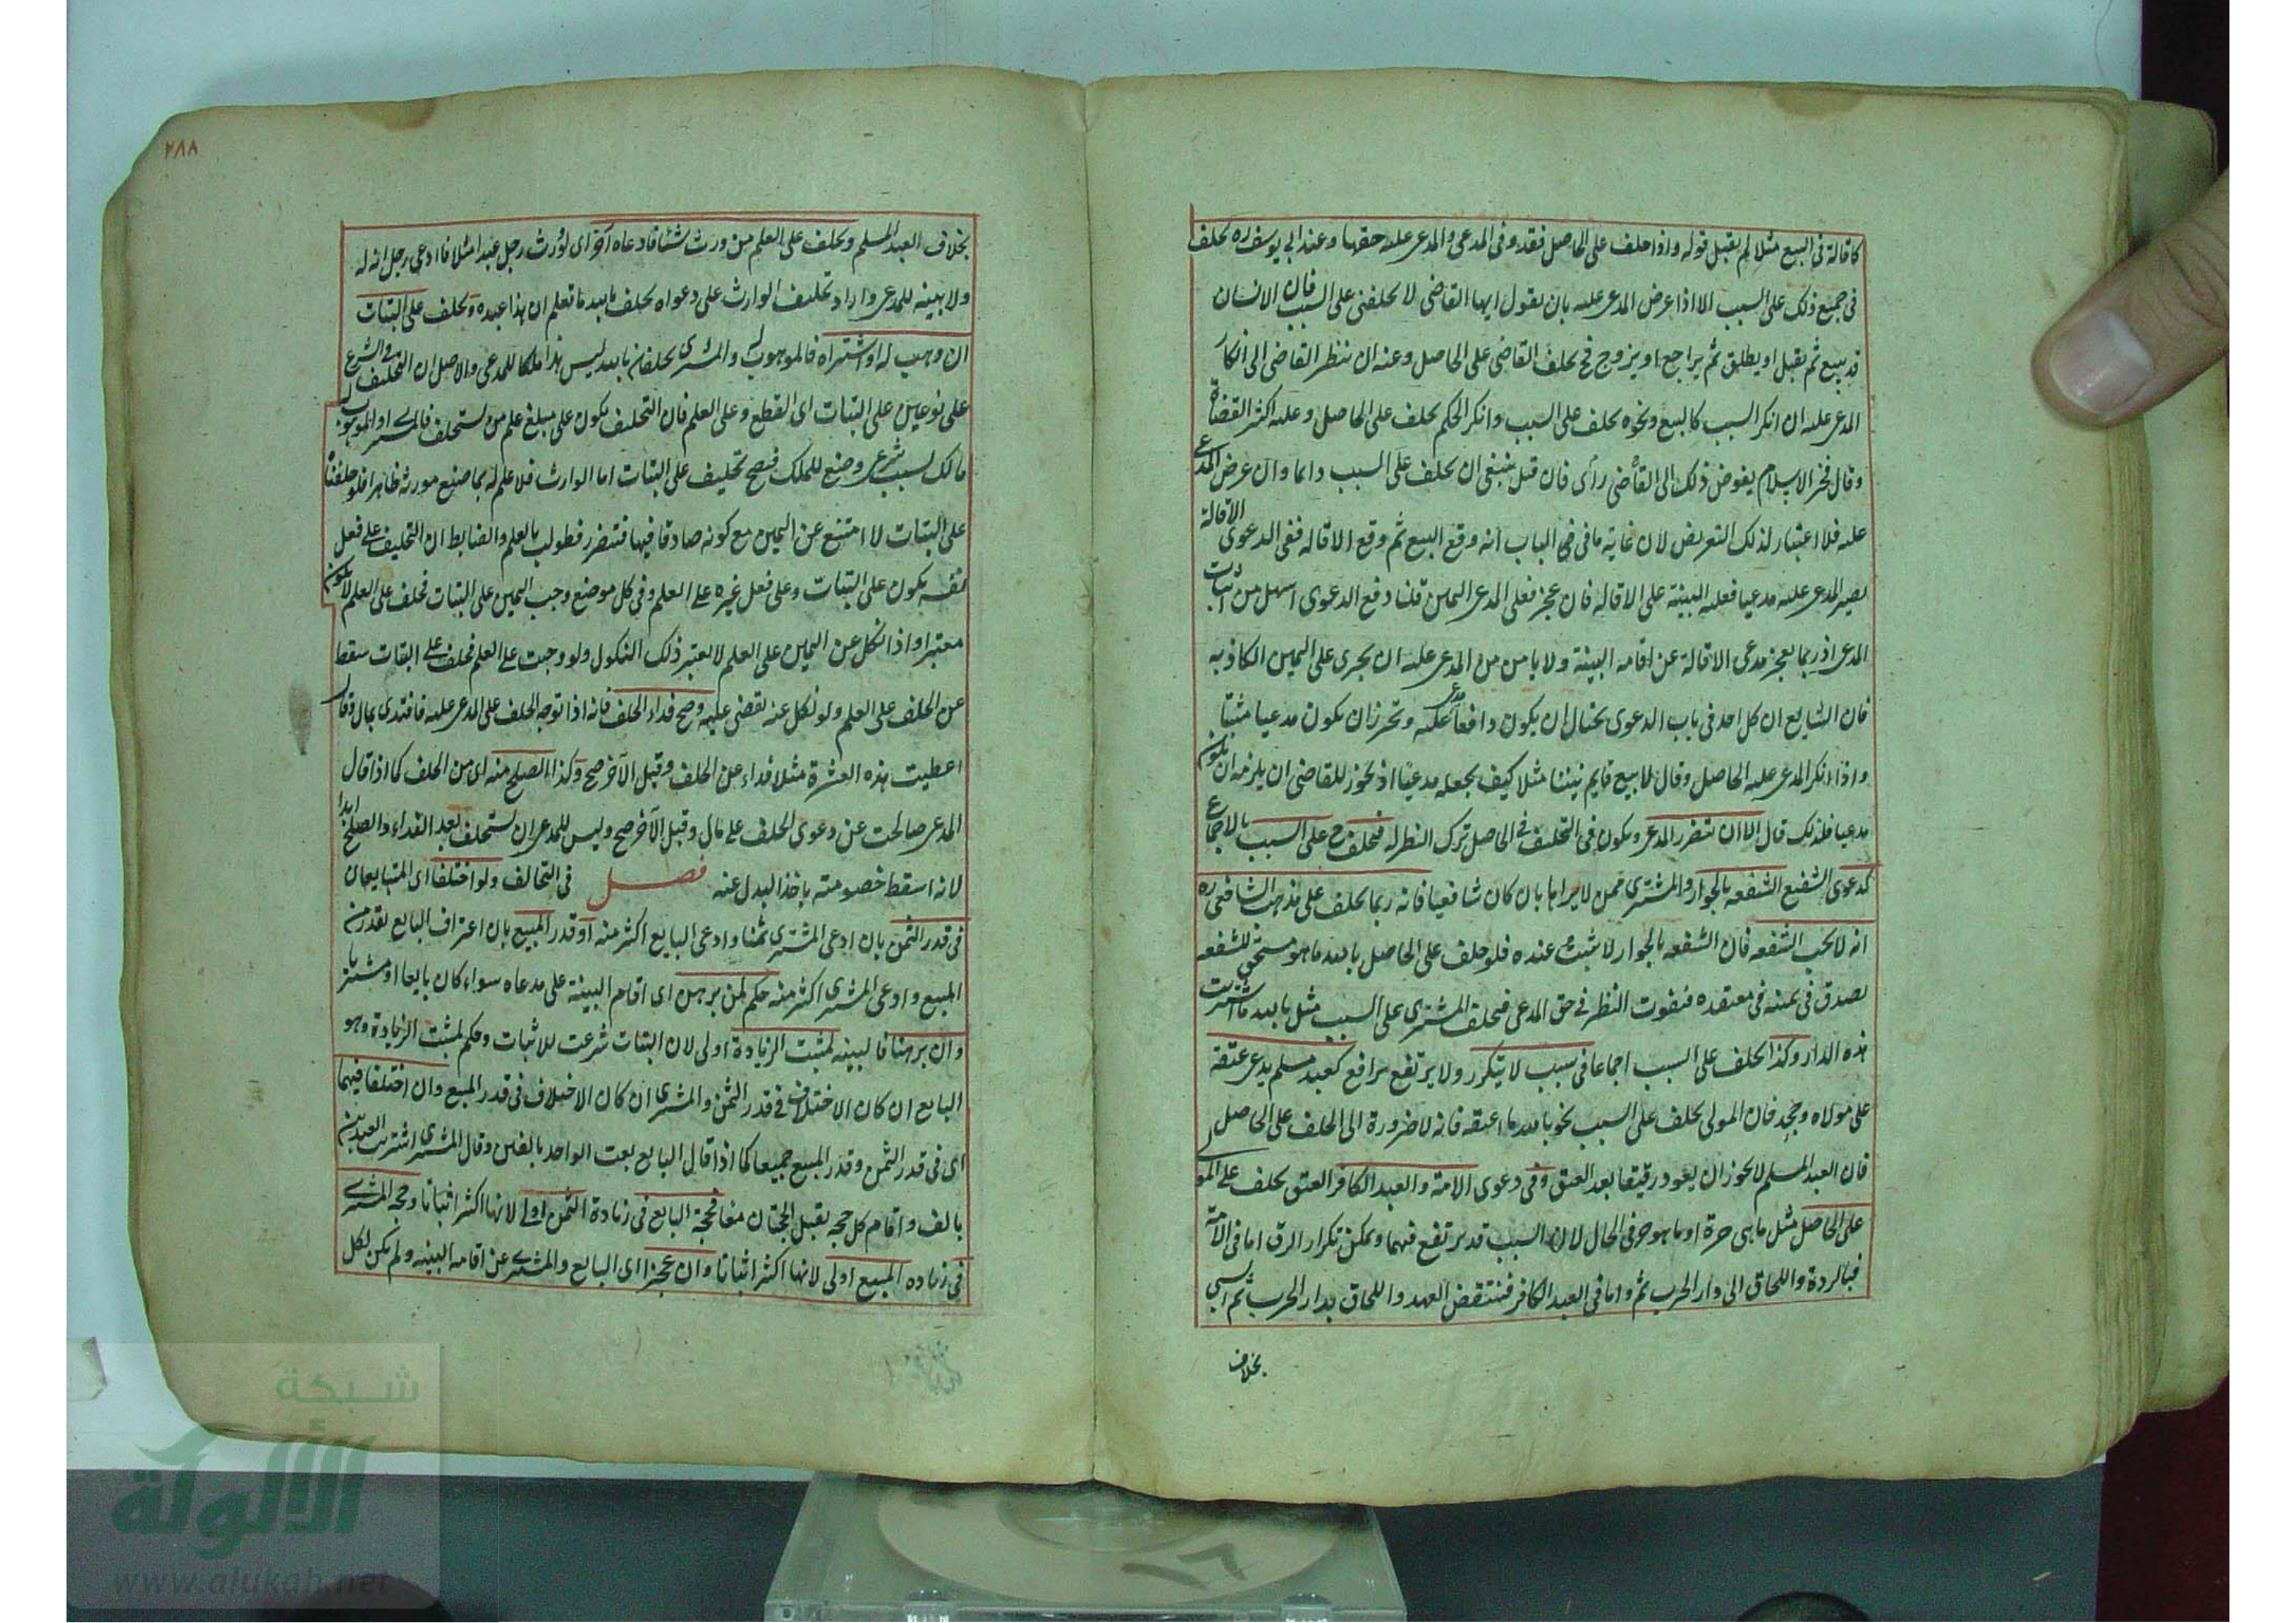 كاقالة فى البيع مثلا لم يقبل قوله واذا حلف على الحاصل فقد وفى المدعى والمدعى عليه حقهما وعند ابى يوسف ره يحلف
فى جميع ذلك على السبب الا اذا عرض المدعى عليه بان يقول ايها القاضى لا تحلفنى على السبب فان الانسان
قد يبيع ثم يقبل او يطلق ثم يراجع او يزوج فح يحلف القاضى على الحاصل وعنه ان ينظر القاضى الى انكار
المدعى عليه ان انكر السبب كالبيع ونحوه يحلف على السبب وان انكر الحكم يحلف على الحاصل وعليه اكثر القضاة
وقال فخر الاسلام يفوض ذلك الى القاضى رأى فان قيل ينبغى ان يحلف على السبب دائما وان عرض المدعى
عليه فلا اعتبار لذلك التعريض لان غاية ما فى الباب انه وقع البيع ثم وقع الاقاله ففى الدعوى الاقالة
يصير المدعى عليه مدعيا فعليه البينة على الاقاله فان عجز فعلى المدعى اليمين قلنا دفع الدعوى اسهل من اثبات
المدعى اذ ربما يعجز مدعى الاقالة عن اقامة البينة ولا يامن من المدعى عليه ان يجرى على اليمين الكاذبه
فان الشايع ان كل احد فى باب الدعوى يحتال ان يكون دافعا عليه وتحرز ان يكون مدعيا مثبتا
واذا انكر المدعى عليه الحاصل وقال لا بيع قايم بيننا مثلا كيف يجعله مدعيا اذ يجوز للقاضى ان يلزمه ان يكون
مدعيا فلذلك قال الا ان يتضرر المدعى ويكون فى التحليف فى الحاصل ترك النظر له فيحلف ح على السبب بالاجماع
كدعوى الشفيع الشفعه بالجوار والمشترى ممن لا يراها بان كان شافعيا فانه ربما يحلف على مذهب الشافعى ره
انه لا يجب الشفعه فان الشفعه بالجوار لا تثبت عنده فلو حلف على الحاصل بالله ما هو مستحق للشفعه
يصدق فى يمينه فى معتقده فيفوت النظر فى حق المدعى فيحلف المشترى على السبب مثل بالله ما اشتريت
هذه الدار وكذا يحلف على السبب اجماعا فى سبب لا يتكرر ولا يرتفع برافع كعبد مسلم يدعى عتقه
على مولاه وجحد فان المولى يحلف على السبب نحو بالله ما اعتقه فانه لا ضرورة الى الحلف على الحاصل
فان العبد المسلم لا يجوز ان يعود رقيقا بعد العتق وفى دعوى الامة والعبد الكافر العتق يحلف على المولى
على الحاصل مثل ما هى حرة او ما هو حر فى الحال لان السبب قد يرتفع فيهما ويمكن تكرار الرق اما فى الامة
فبالردة واللحاق الى دار الحرب ثم واما فى العبد الكافر فينتقض العهد واللحاق بدار الحرب ثم السبى
بخلاف
٢٨٨
بخلاف العبد المسلم ويحلف على العلم من ورث شيئا فادعاه آخر اى لو ورث رجل عبدا مثلا فادعى رجل انه له
ولا بينه للمدعى واراد تحليف الوارث على دعواه يحلف بالله ما تعلم ان هذا عبده ويحلف على البتات
ان وهب له او اشتراه فالموهوب له والمشترى يحلفان بالله ليس هذا ملكا للمدعى والاصل ان التحليف فى الشرع
على نوعين على البتات اى القطع وعلى العلم فان التحليف يكون على مبلغ علم من يستحلف فالمشترى او الموهوب له
مالك بسبب شرعى وضع للملك فيصح تحليف على البتات اما الوارث فلا علم له بما صنع مورثه ظاهرا فلو حلفناه
على البتات لا امتنع عن اليمين مع كونه صادقا فيها فتضرر فطولب بالعلم والضابط ان التحليف على فعل
نفسه يكون على البتات وعلى فعل غيره على العلم وفى كل موضع وجب اليمين على البتات فحلف على العلم لا يكون
معتبرا واذا نكل عن اليمين على العلم لا يعتبر ذلك النكول ولو وجبت على العلم فحلف على البتات سقط
عن الحلف على العلم ولو نكل عنه يقضى عليه وصح فداء الحلف فانه اذا توجه الحلف على المدعى عليه فافتدى بمال وقال
اعطيت هذه العشرة مثلا فداء عن الحلف وقبل الآخر صح وكذا الصلح منه اى من الحلف كما اذا قال
المدعى صالحت عن دعوى الحلف على مال وقبل الآخر صح وليس للمدعى ان يستحلف بعد الفداء والصلح ابدا
لانه اسقط خصومته باخذ البدل عنه فصل فى التحالف ولو اختلفا اى المتبايعان
فى قدر الثمن بان ادعى المشترى ثمنا وادعى البايع اكثر منه او قدر المبيع بان اعترف البايع بقدر من
المبيع وادعى المشترى اكثر منه حكم لمن برهن اى اقام البينة على مدعاه سواء كان بايعا او مشتريا
وان برهنا فالبينه لمثبت الزيادة اولى لان البينات شرعت للاثبات وحكم لمثبت الزيادة وهو
البايع ان كان الاختلاف فى قدر الثمن والمشترى ان كان الاختلاف فى قدر المبيع وان اختلفا فيهما
اى فى قدر الثمن وقدر المبيع جميعا كما اذا قال البايع بعت الواحد بالفين وقال المشترى اشتريت العبدين
بالف واقام كل حجة يقبل الحجتان معا فحجة البايع فى زيادة الثمن اولى لانها اكثر اثباتا وحجة المشترى
فى زياده المبيع اولى لانها اكثر اثباتا وان عجزا اى البايع والمشترى عن اقامة البينه ولم يكن لكل
شبكة
الألوكة
www.alukah.net